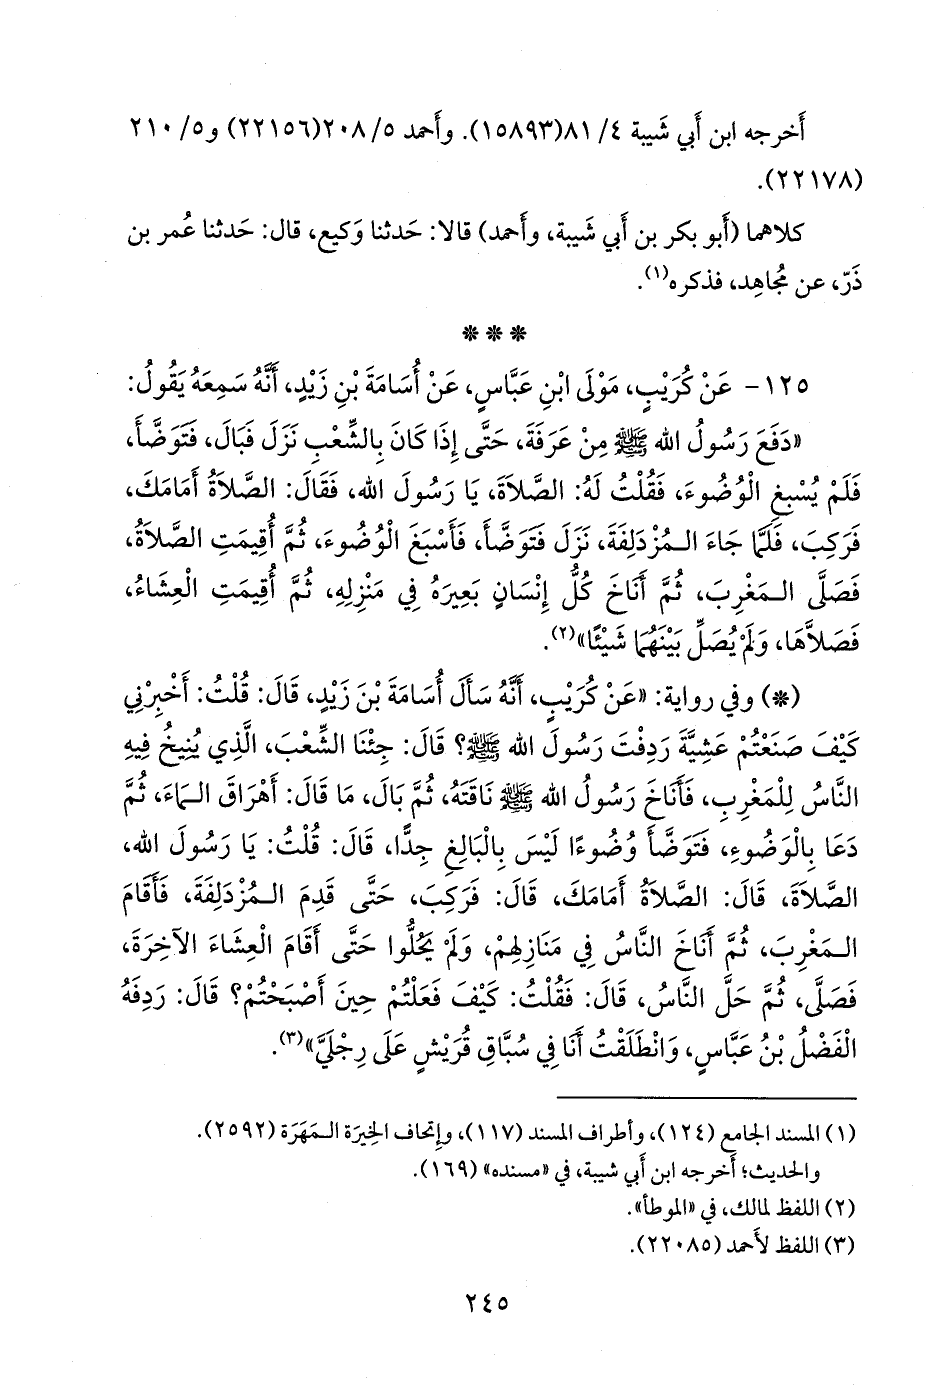 أَخرجه ابن أَبي شَيبة ٤/ ٨١(١٥٨٩٣). وأَحمد ٥/ ٢٠٨(٢٢١٥٦) و٥/ ٢١٠
(٢٢١٧٨).
كلاهما (أَبو بكر بن أَبي شَيبة، وأَحمد) قالا: حَدثنا وَكيع، قال: حَدثنا عُمر بن
ذَرّ، عن مُجاهِد، فذكره(١).
* * *
١٢٥- عَنْ كُرَيْبٍ، مَوْلَى ابْنِ عَبَّاسٍ، عَنْ أُسَامَةَ بْنِ زَيْدٍ، أَنَّهُ سَمِعَهُ يَقُولُ:
«دَفَعَ رَسُولُ الله ﷺ مِنْ عَرَفَةَ، حَتَّى إِذَا كَانَ بِالشِّعْبِ نَزَلَ فَبَالَ، فَتَوَضَّأَ،
فَلَمْ يُسْبِغِ الْوُضُوءَ، فَقُلْتُ لَهُ: الصَّلاَةَ، يَا رَسُولَ الله، فَقَالَ: الصَّلاَةُ أَمَامَكَ،
فَرَكِبَ، فَلَمَّا جَاءَ الـمُزْدَلِفَةَ، نَزَلَ فَتَوَضَّأَ، فَأَسْبَغَ الْوُضُوءَ، ثُمَّ أُقِيمَتِ الصَّلاَةُ،
فَصَلَّى الـمَغْرِبَ، ثُمَّ أَنَاخَ كُلُّ إِنْسَانٍ بَعِيرَهُ فِي مَنْزِلِهِ، ثُمَّ أُقِيمَتِ الْعِشَاءُ،
فَصَلاَّهَا، وَلَمْ يُصَلِّ بَيْنَهُمَا شَيْئًا»(٢).
(*) وفي رواية: «عَنْ كُرَيْبٍ، أَنَّهُ سَأَلَ أُسَامَةَ بْنَ زَيْدٍ، قَالَ: قُلْتُ: أَخْبِرْنِي
كَيْفَ صَنَعْتُمْ عَشِيَّةَ رَدِفْتَ رَسُولَ الله ﷺ؟ قَالَ: جِئْنَا الشِّعْبَ، الَّذِي يُنِيخُ فِيهِ
النَّاسُ لِلْمَغْرِبِ، فَأَنَاخَ رَسُولُ الله ﷺ نَاقَتَهُ، ثُمَّ بَالَ، مَا قَالَ: أَهْرَاقَ الـمَاءَ، ثُمَّ
دَعَا بِالْوَضُوءِ، فَتَوَضَّأَ وُضُوءًا لَيْسَ بِالْبَالِغِ جِدًّا، قَالَ: قُلْتُ: يَا رَسُولَ الله،
الصَّلاَةَ، قَالَ: الصَّلاَةُ أَمَامَكَ، قَالَ: فَرَكِبَ، حَتَّى قَدِمَ الـمُزْدَلِفَةَ، فَأَقَامَ
الـمَغْرِبَ، ثُمَّ أَنَاخَ النَّاسُ فِي مَنَازِلِهِمْ، وَلَمْ يَحُلُّوا حَتَّى أَقَامَ الْعِشَاءَ الآخِرَةَ،
فَصَلَّى، ثُمَّ حَلَّ النَّاسُ، قَالَ: فَقُلْتُ: كَيْفَ فَعَلْتُمْ حِينَ أَصْبَحْتُمْ؟ قَالَ: رَدِفَهُ
الْفَضْلُ بْنُ عَبَّاسٍ، وَانْطَلَقْتُ أَنَا فِي سُبَّاقِ قُرَيْشٍ عَلَى رِجْلَيَّ»(٣).
(١) المسند الجامع (١٢٤)، وأطراف المسند (١١٧)، وإتحاف الخِيرَة الـمَهَرَة (٢٥٩٢).
والحديث؛ أَخرجه ابن أَبي شيبة، في «مسنده» (١٦٩).
(٢) اللفظ لمالك، في «الموطأ».
(٣) اللفظ لأَحمد (٢٢٠٨٥).
٢٤٥